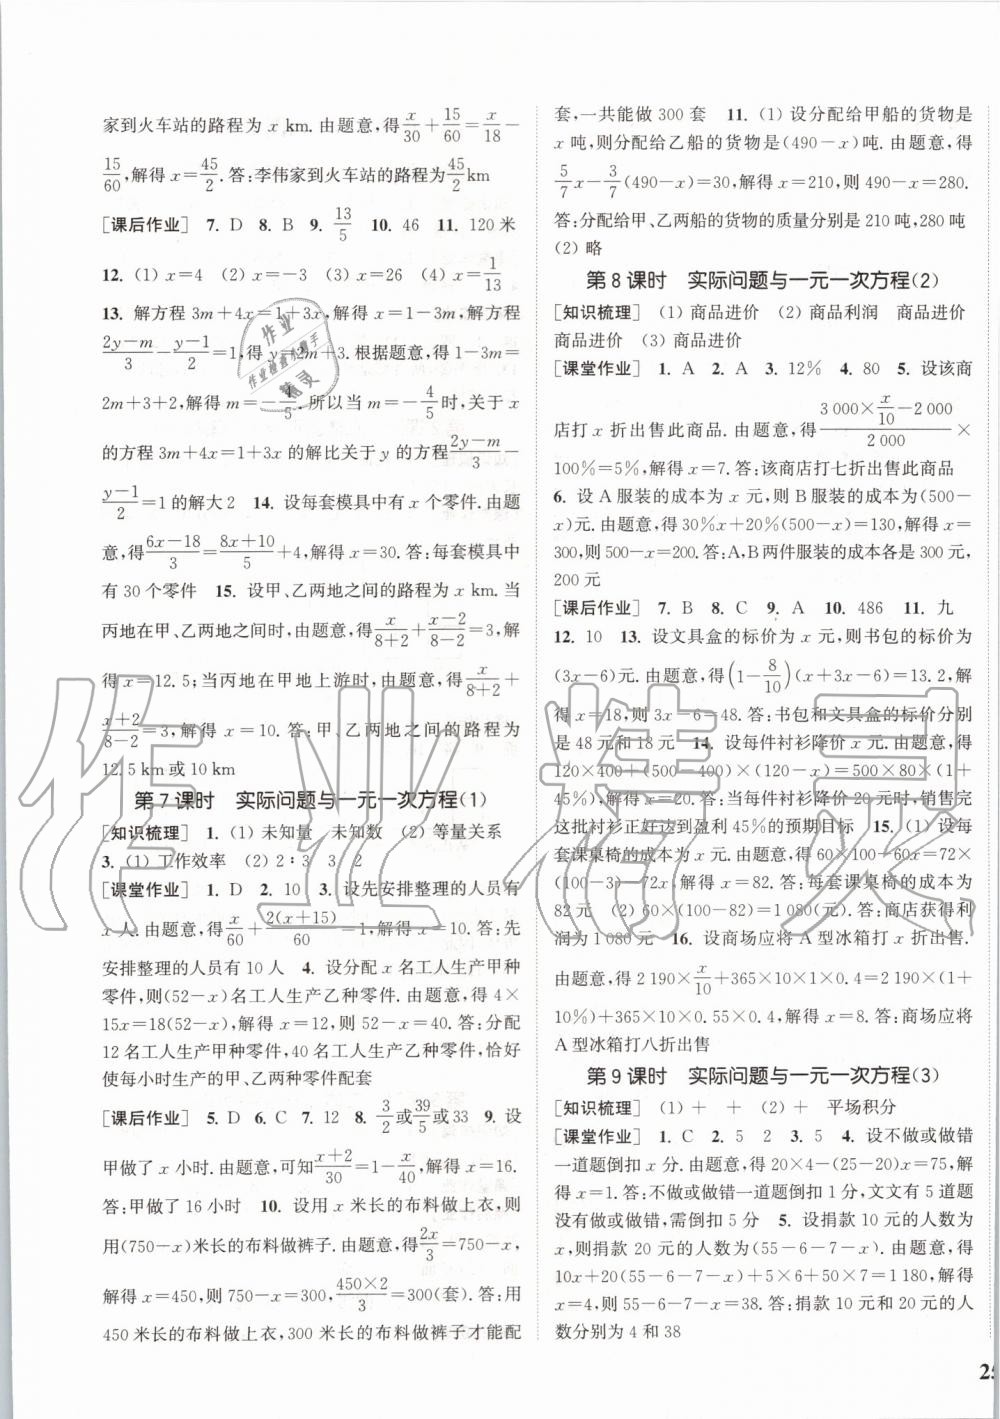 家到火车站的路程为 x km. 由题意,得 x/30 + 15/60 = x/18 −
15/60, 解得 x = 45/2. 答:李伟家到火车站的路程为 45/2 km
[课后作业] 7. D 8. B 9. 13/5 10. 46 11. 120 米
12. (1) x=4 (2) x=−3 (3) x=26 (4) x = 1/13
13. 解方程 3m+4x=1+3x,解得 x=1−3m. 解方程
(2y−m)/3 − (y−1)/2 = 1,得 y=2m+3. 根据题意,得 1−3m=
2m+3+2,解得 m=−4/5. 所以当 m=−4/5 时,关于 x
的方程 3m+4x=1+3x 的解比关于 y 的方程 (2y−m)/3 −
(y−1)/2 = 1 的解大 2 14. 设每套模具中有 x 个零件. 由题
意,得 (6x−18)/3 = (8x+10)/5 + 4,解得 x=30. 答:每套模具中
有 30 个零件 15. 设甲、乙两地之间的路程为 x km. 当
丙地在甲、乙两地之间时,由题意,得 x/(8+2) + (x−2)/(8−2) = 3,解
得 x=12.5;当丙地在甲地上游时,由题意,得 x/(8+2) +
(x+2)/(8−2) = 3,解得 x=10. 答:甲、乙两地之间的路程为
12.5 km 或 10 km
第 7 课时 实际问题与一元一次方程(1)
[知识梳理] 1. (1) 未知量 未知数 (2) 等量关系
3. (1) 工作效率 (2) 2∶3 3 2
[课堂作业] 1. D 2. 10 3. 设先安排整理的人员有
x 人. 由题意,得 x/60 + 2(x+15)/60 = 1,解得 x=10. 答:先
安排整理的人员有 10 人 4. 设分配 x 名工人生产甲种
零件,则(52−x)名工人生产乙种零件. 由题意,得 4×
15x=18(52−x),解得 x=12,则 52−x=40. 答:分配
12 名工人生产甲种零件,40 名工人生产乙种零件,恰好
使每小时生产的甲、乙两种零件配套
[课后作业] 5. D 6. C 7. 12 8. 3/2 或 39/5 或 33 9. 设
甲做了 x 小时. 由题意,可知 (x+2)/30 = 1 − x/40,解得 x=16.
答:甲做了 16 小时 10. 设用 x 米长的布料做上衣,则
用(750−x)米长的布料做裤子. 由题意,得 2x/3 = 750−x,
解得 x=450,则 750−x=300, 450×2/3 = 300(套). 答:用
450 米长的布料做上衣,300 米长的布料做裤子才能配
套,一共能做 300 套 11. (1) 设分配给甲船的货物是
x 吨,则分配给乙船的货物是(490−x)吨. 由题意,得
5/7 x − 3/7 (490−x)=30,解得 x=210,则 490−x=280.
答:分配给甲、乙两船的货物的质量分别是 210 吨,280 吨
(2) 略
第 8 课时 实际问题与一元一次方程(2)
[知识梳理] (1) 商品进价 (2) 商品利润 商品进价
商品进价 (3) 商品进价
[课堂作业] 1. A 2. A 3. 12% 4. 80 5. 设该商
店打 x 折出售此商品. 由题意,得 (3 000× x/10 −2 000)/2 000 ×
100%=5%,解得 x=7. 答:该商店打七折出售此商品
6. 设 A 服装的成本为 x 元,则 B 服装的成本为(500−
x)元. 由题意,得 30%x+20%(500−x)=130,解得 x=
300,则 500−x=200. 答:A,B 两件服装的成本各是 300 元,
200 元
[课后作业] 7. B 8. C 9. A 10. 486 11. 九
12. 10 13. 设文具盒的标价为 x 元,则书包的标价为
(3x−6)元. 由题意,得 (1− 8/10)(x+3x−6)=13.2,解
得 x=18,则 3x−6=48. 答:书包和文具盒的标价分别
是 48 元和 18 元 14. 设每件衬衫降价 x 元. 由题意,得
120×400+(500−400)×(120−x)=500×80×(1+
45%),解得 x=20. 答:当每件衬衫降价 20 元时,销售完
这批衬衫正好达到盈利 45%的预期目标 15. (1) 设每
套课桌椅的成本为 x 元. 由题意,得 60×100−60x=72×
(100−3)−72x,解得 x=82. 答:每套课桌椅的成本为
82 元 (2) 60×(100−82)=1 080(元). 答:商店获得利
润为 1 080 元 16. 设商场应将 A 型冰箱打 x 折出售.
由题意,得 2 190× x/10 +365×10×1×0.4=2 190×(1+
10%)+365×10×0.55×0.4,解得 x=8. 答:商场应将
A 型冰箱打八折出售
第 9 课时 实际问题与一元一次方程(3)
[知识梳理] (1) + + (2) + 平场积分
[课堂作业] 1. C 2. 5 2 3. 5 4. 设不做或做错
一道题倒扣 x 分. 由题意,得 20×4−(25−20)x=75,解
得 x=1. 答:不做或做错一道题倒扣 1 分,文文有 5 道题
没有做或做错,需倒扣 5 分 5. 设捐款 10 元的人数为
x,则捐款 20 元的人数为(55−6−7−x). 由题意,得
10x+20(55−6−7−x)+5×6+50×7=1 180,解得
x=4,则 55−6−7−x=38. 答:捐款 10 元和 20 元的人
数分别为 4 和 38
25
作业精灵
作业
作业检查小帮手
精灵